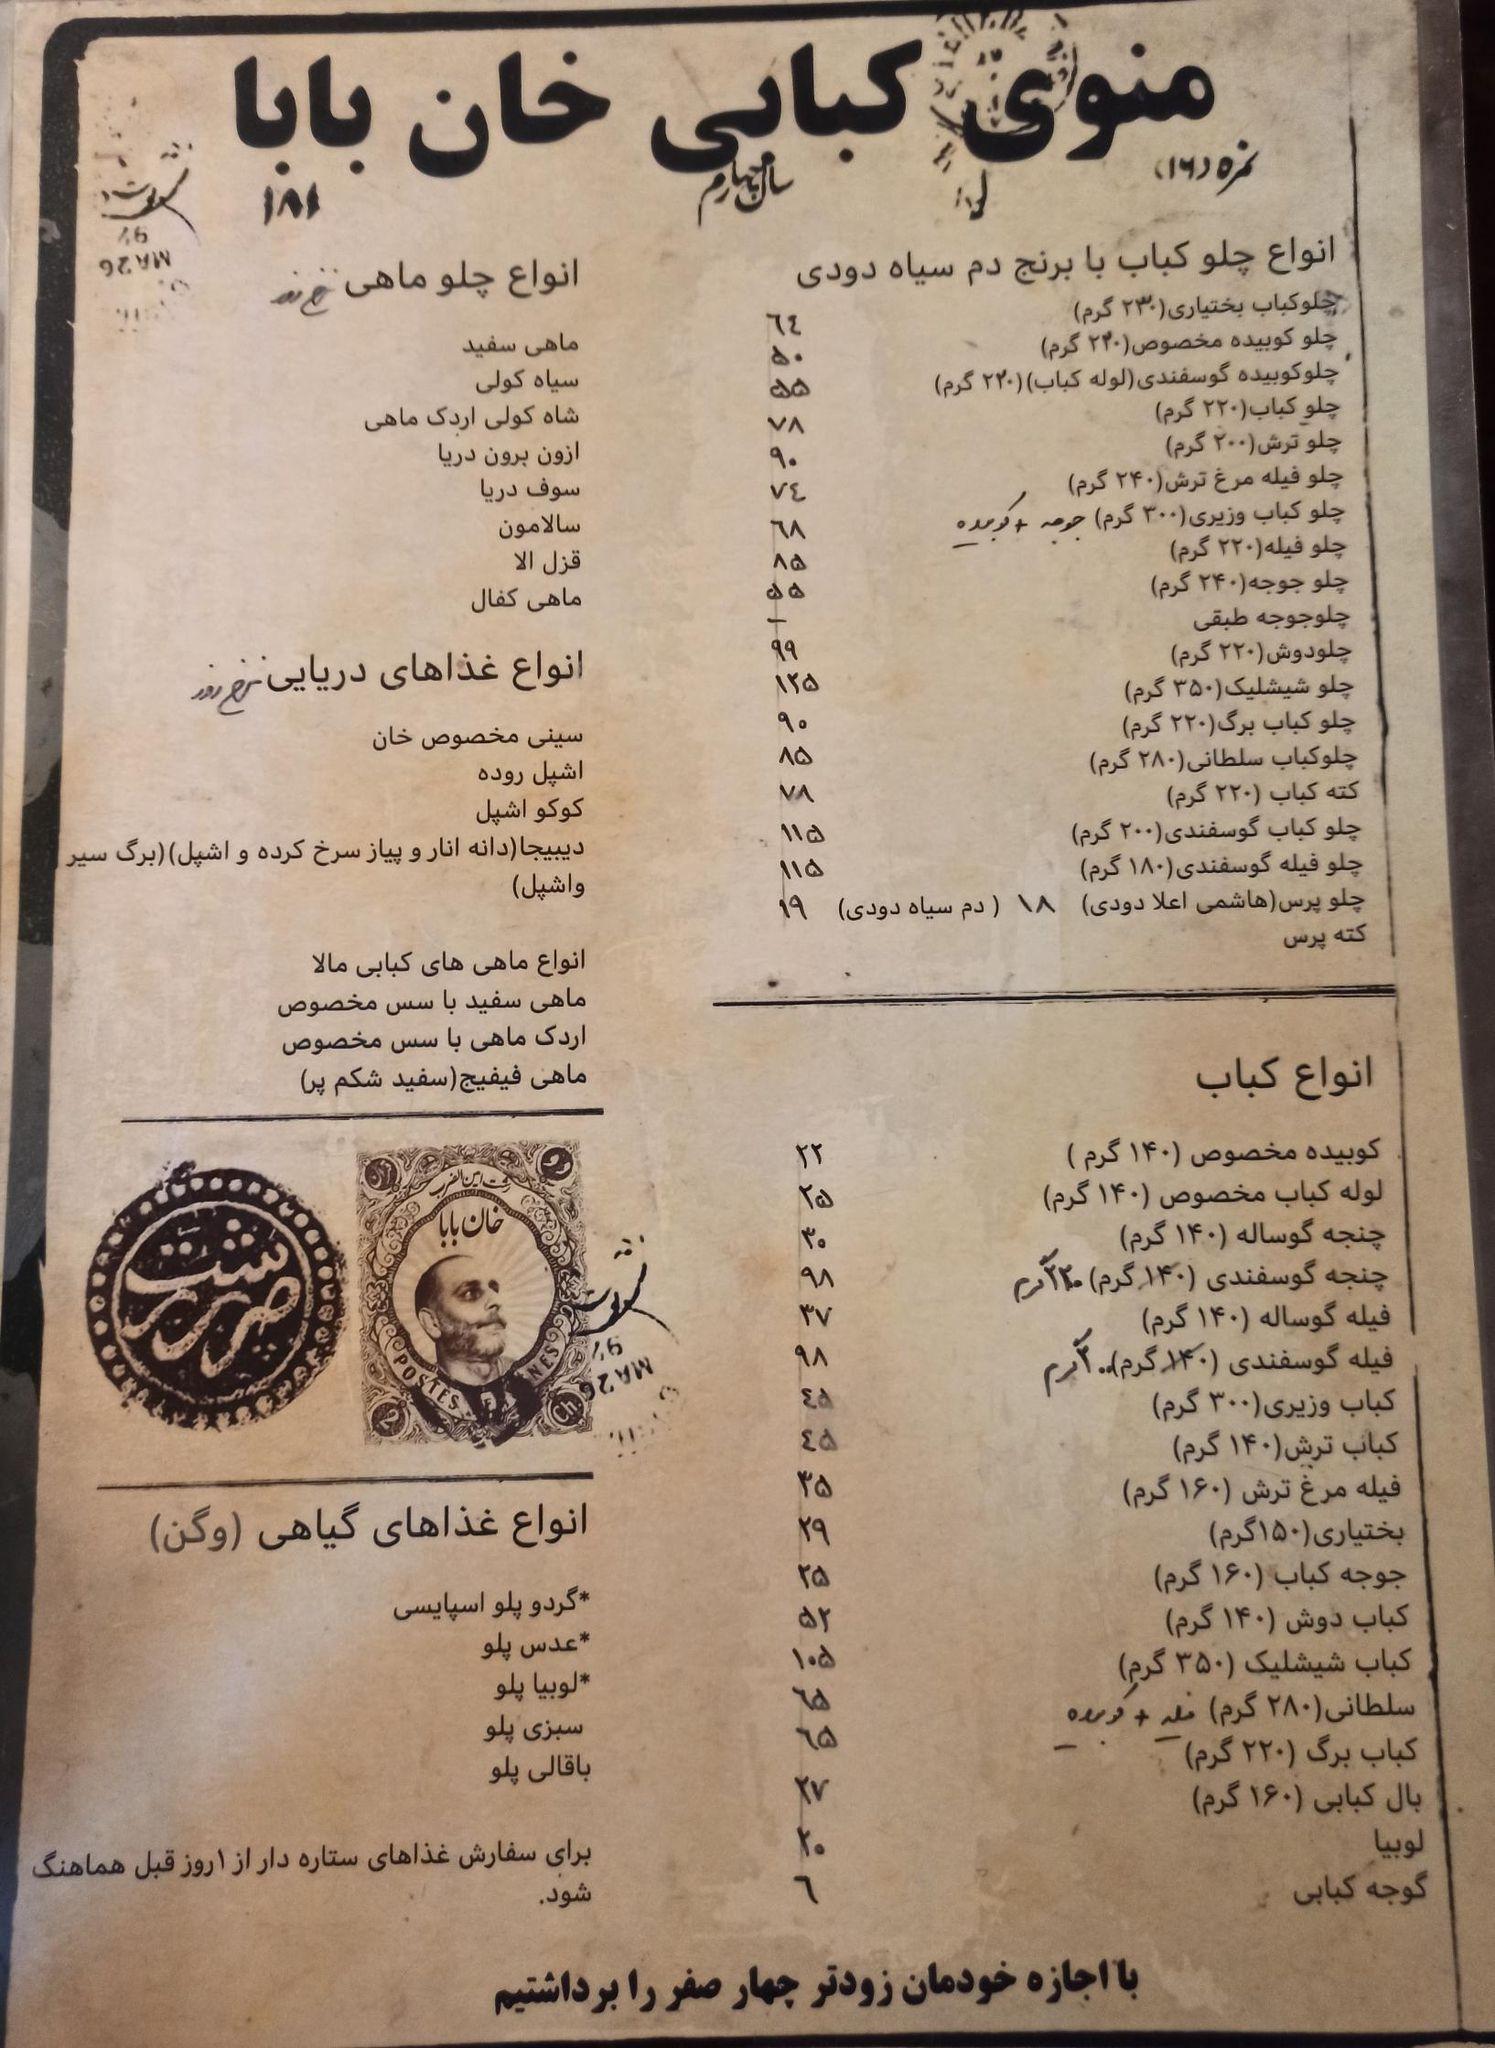 منوی کبابی خان بابا
نمره (۱۶)
سال چهارم
۱۸۱
انواع چلو کباب با برنج دم سیاه دودی
چلوکباب بختیاری(۲۳۰ گرم) ٦٤
چلو کوبیده مخصوص(۲۲۰ گرم) ۵۰
چلوکوبیده گوسفندی(لوله کباب)(۲۲۰ گرم) ۵۵
چلو کباب(۲۲۰ گرم) ۷۸
چلو ترش(۲۰۰ گرم) ۹۰
چلو فیله مرغ ترش(۲۴۰ گرم) ۷٤
چلو کباب وزیری(۳۰۰ گرم) جوجه + کوبیده ٦۸
چلو فیله(۲۲۰ گرم) ۸۵
چلو جوجه(۲۴۰ گرم) ۵۵
چلوجوجه طبقی -
چلودوش(۲۲۰ گرم) ۹۹
چلو شیشلیک(۳۵۰ گرم) ۱۲۵
چلو کباب برگ(۲۲۰ گرم) ۹۰
چلوکباب سلطانی(۲۸۰ گرم) ۸۵
کته کباب (۲۲۰ گرم) ۷۸
چلو کباب گوسفندی(۲۰۰ گرم) ۱۱۵
چلو فیله گوسفندی(۱۸۰ گرم) ۱۱۵
چلو پرس(هاشمی اعلا دودی) ۱۸ ( دم سیاه دودی) ۱۹
کته پرس
انواع کباب
کوبیده مخصوص (۱۴۰ گرم ) ۲۲
لوله کباب مخصوص (۱۴۰ گرم) ۲۵
چنجه گوساله (۱۴۰ گرم) ۳۰
چنجه گوسفندی (۱۴۰ گرم) ۲۲۰ گرم ۹۸
فیله گوساله (۱۴۰ گرم) ۳۷
فیله گوسفندی (۱۴۰ گرم) ۲۰۰ گرم ۹۸
کباب وزیری(۳۰۰ گرم) ٤۵
کباب ترش(۱۴۰ گرم) ٤۵
فیله مرغ ترش (۱۶۰ گرم) ۳۵
بختیاری(۱۵۰گرم) ۲۹
جوجه کباب (۱۶۰ گرم) ۲۵
کباب دوش (۱۴۰ گرم) ۵۲
کباب شیشلیک (۳۵۰ گرم) ۱۰۵
سلطانی(۲۸۰ گرم) فیله + کوبیده ٦۵
کباب برگ (۲۲۰ گرم) ٦۵
بال کبابی (۱۶۰ گرم) ۲۷
لوبیا ۲۰
گوجه کبابی ٦
انواع چلو ماهی نرخ روز
ماهی سفید
سیاه کولی
شاه کولی اردک ماهی
ازون برون دریا
سوف دریا
سالامون
قزل الا
ماهی کفال
انواع غذاهای دریایی نرخ روز
سینی مخصوص خان
اشپل روده
کوکو اشپل
دیبیجا(دانه انار و پیاز سرخ کرده و اشپل)(برگ سیر
واشپل)
انواع ماهی های کبابی مالا
ماهی سفید با سس مخصوص
اردک ماهی با سس مخصوص
ماهی فیفیج(سفید شکم پر)
رشت امین الضرب
خان بابا
POSTES
2
Ch
MA 26
انواع غذاهای گیاهی (وگن)
*گردو پلو اسپایسی
*عدس پلو
*لوبیا پلو
سبزی پلو
باقالی پلو
برای سفارش غذاهای ستاره دار از ۱روز قبل هماهنگ
شود.
با اجازه خودمان زودتر چهار صفر را برداشتیم